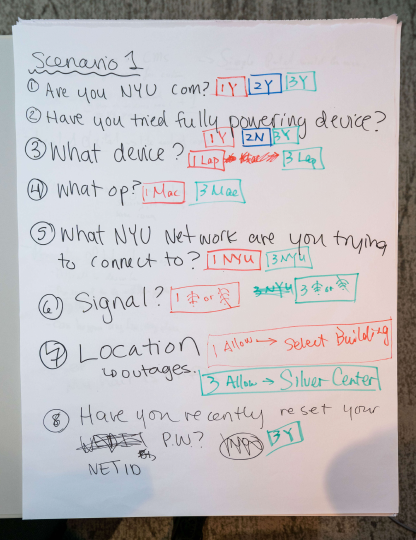 Scenario 1
① Are you NYU com? 1Y 2Y 3Y
② Have you tried fully powering device?
1Y 2N 3Y
③ What device? 1 Lap 3 Lap
④ What op? 1 Mac 3 Mac
⑤ What NYU Network are you trying
to connect to? 1 NYU 3 NYU
⑥ Signal? 1 or 3 NYU 3 or
⑦ Location 1 Allow → Select Building
↳ outages. 3 Allow → Silver Center
⑧ Have you recently reset your
P.W.? 3Y
NET ID